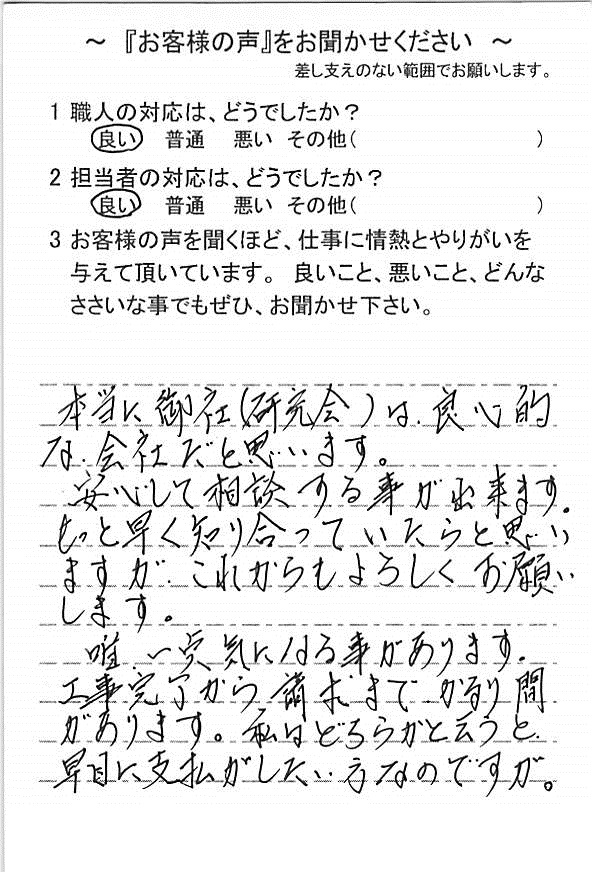 ～ 『お客様の声』をお聞かせください ～
差し支えのない範囲でお願いします。
1 職人の対応は、どうでしたか？
良い 普通 悪い その他( )
2 担当者の対応は、どうでしたか？
良い 普通 悪い その他( )
3 お客様の声を聞くほど、仕事に情熱とやりがいを
与えて頂いています。 良いこと、悪いこと、どんな
ささいな事でもぜひ、お聞かせ下さい。
本当に御社(研究会)は、良心的
な会社だと思います。
安心して相談する事が出来ます。
もっと早く知り合っていたらと思い
ますが、これからもよろしくお願い
します。
唯、一点気になる事があります。
工事完了から請求までかなり間
があります。私はどちらかと云うと、
早目に支払がしたい方なのですが。